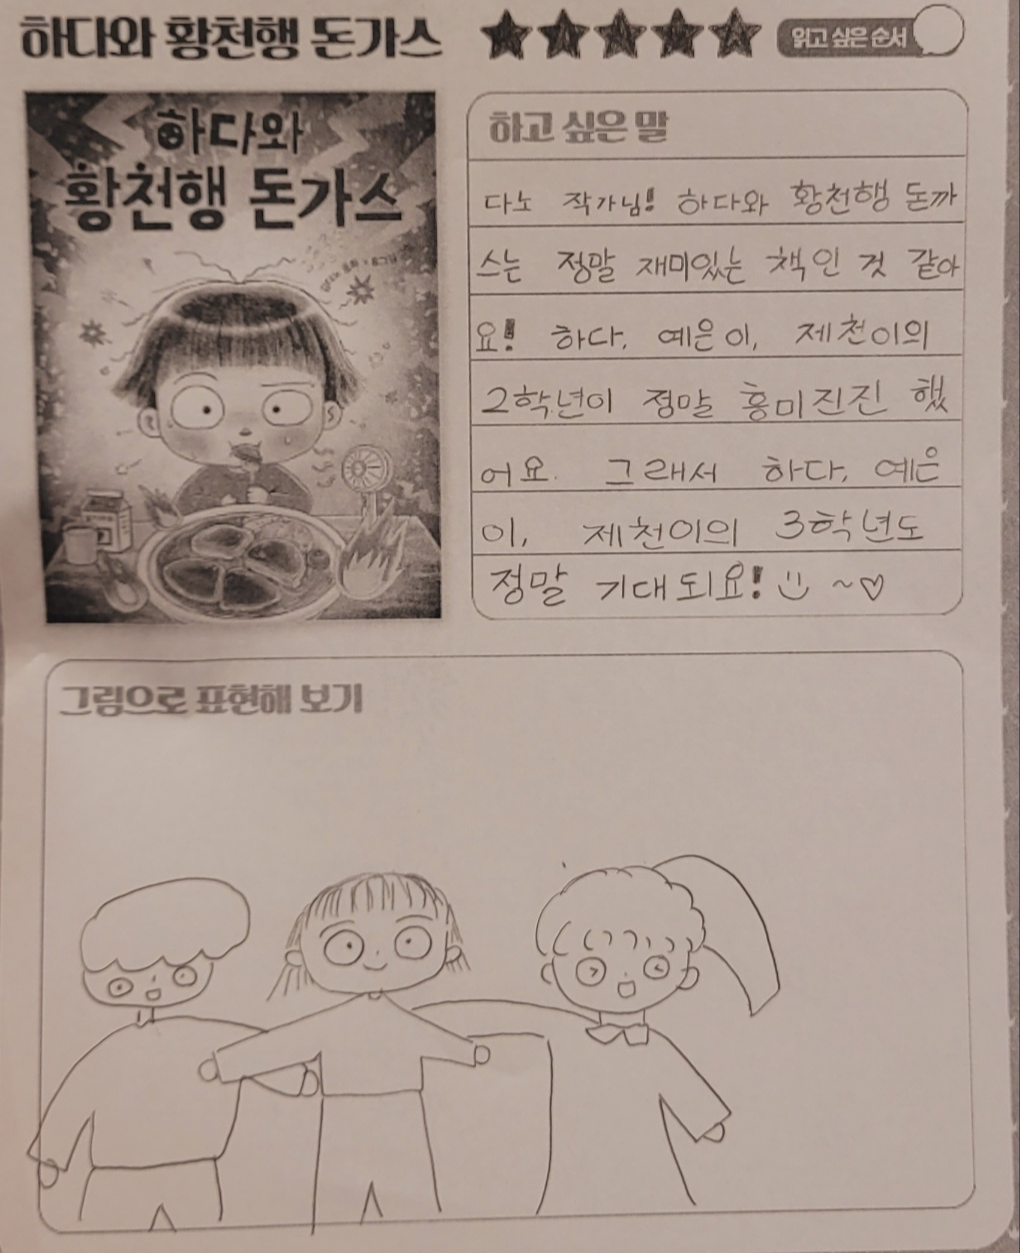 하다와 황천행 돈가스
읽고 싶은 순서
하다와
황천행 돈가스
하고 싶은 말
다노 작가님! 하다와 황천행 돈까
스는 정말 재미있는 책인 것 같아
요! 하다, 예은이, 제천이의
2학년이 정말 흥미진진 했
어요. 그래서 하다, 예은
이, 제천이의 3학년도
정말 기대되요! ~♡
그림으로 표현해 보기